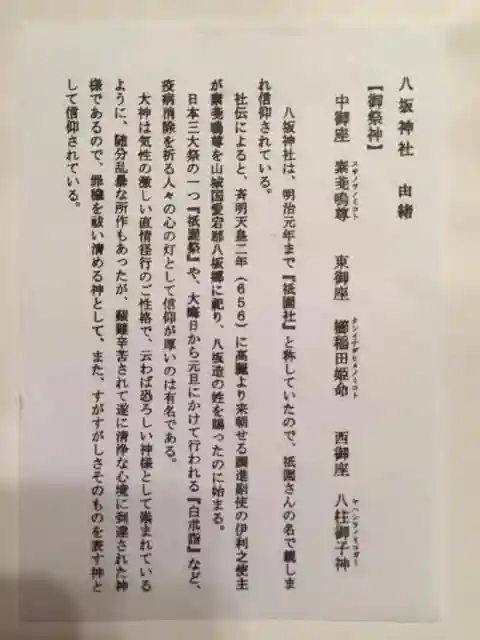 八坂神社 由緒
【御祭神】
中御座 素戔嗚尊 東御座 櫛稲田姫命 西御座 八柱御子神
スサノヲノミコト クシイナダヒメノミコト ヤハシラノミコガミ
八坂神社は、明治元年まで『祇園社』と称していたので、祇園さんの名で親しま
れ信仰されている。
社伝によると、斉明天皇二年（656）に高麗より来朝せる調進副使の伊利之使主
が素戔嗚尊を山城国愛宕郡八坂郷に祀り、八坂造の姓を賜ったのに始まる。
日本三大祭の一つ『祇園祭』や、大晦日から元旦にかけて行われる『白朮詣』など、
疫病消除を祈る人々の心の灯として信仰が厚いのは有名である。
大神は気性の激しい直情径行のご性格で、云わば恐ろしい神様として崇まれている
ように、随分乱暴な所作もあったが、艱難辛苦されて遂に清浄な心境に到達された神
様であるので、罪穢を祓い清める神として、また、すがすがしさそのものを表す神と
して信仰されている。